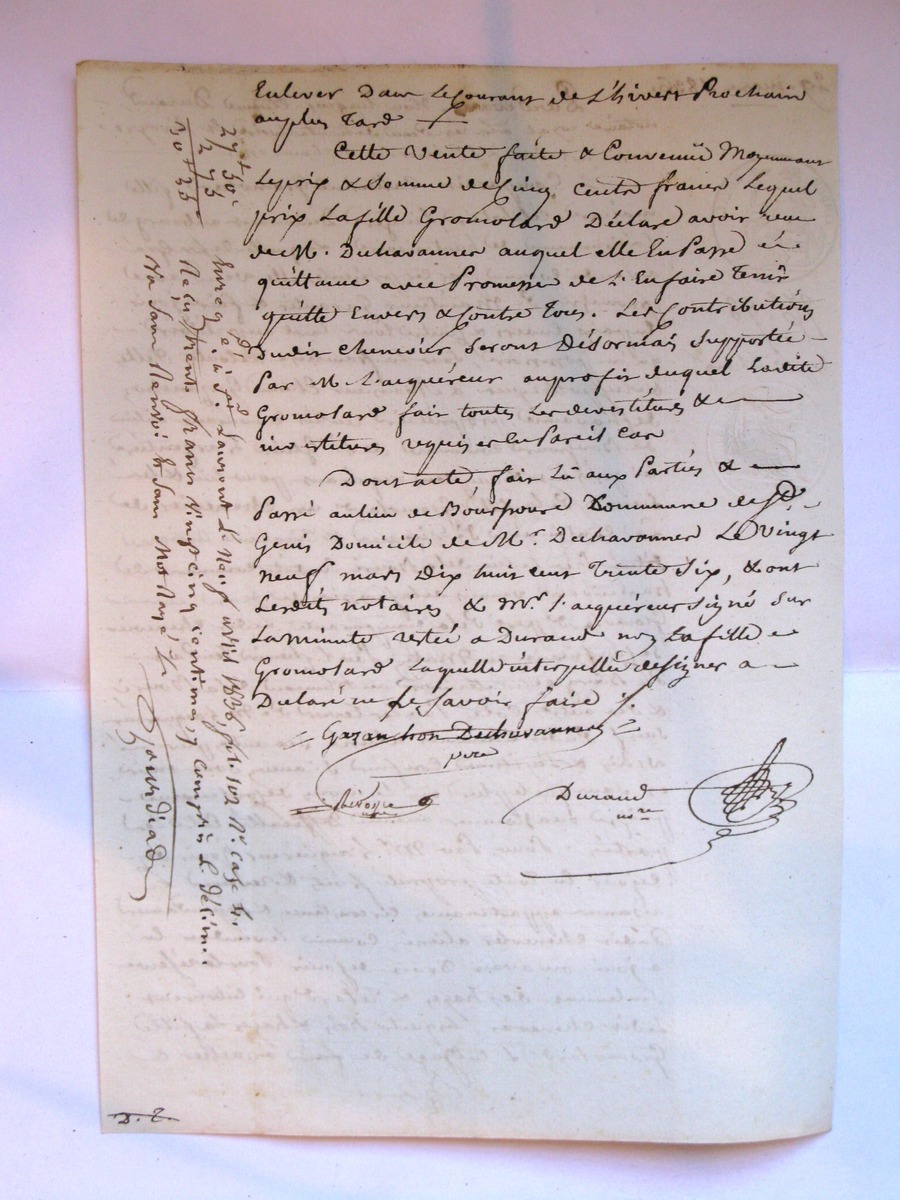 Enlever Dans Le Courant de L'hivert Prochain
au plus Tard
Cette Vente faite & Convenüe Moyennant
Le prix & Somme de Cinq cents francs Lequel
prix La fille Gromolard Déclare avoir reçu
de M. Duchavannes auquel elle En Passe
quittance avec Promesse de L'En faire Tenir
quitte Envers & Contre Tous. Les Contributions
Dudit chenevier Seront Désormais Supportée
Par M. L'acquéreur au profit duquel Ladite
Gromolard fait toutes Les devestitures &
investitures requises En Pareil Cas
Dont acte, fait Lû aux Parties &
Passé au lieu de Commune de St.
Genis Domicile de Mr. Duchavannes Le Vingt
neuf mars Dix huit cent Trente Six, & ont
Lesdits notaires & Mr. l'acquéreur Signé Sur
La minute restée a Durand non La fille
Gromolard Laquelle interpellée de signer a
Déclaré ne Le Savoir faire ./.
Duchavannes
père
Durand
nore
27 50
2 75
30 25
Enreg. à St. Laurent Le Neuf avril 1836 f. 102 Vo. case 4.
Reçu Trente francs vingt cinq centimes, y compris Le décime
Sans Renvoi & Sans Mot Rayé
D. T.